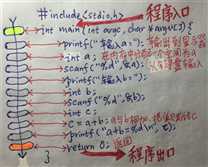 #include<stdio.h> 程序入口
int main(int argc, char *argv[]) {
printf("输入a:"); 输出到显示器
int a; 在内存中给a一个空间
scanf("%d", &a); 从键盘输入
printf("输入b:");
int b;
scanf("%d", &b);
int c;
c = a+b;
printf("a+b=%d\n", c);
return 0; 返回
} 程序出口